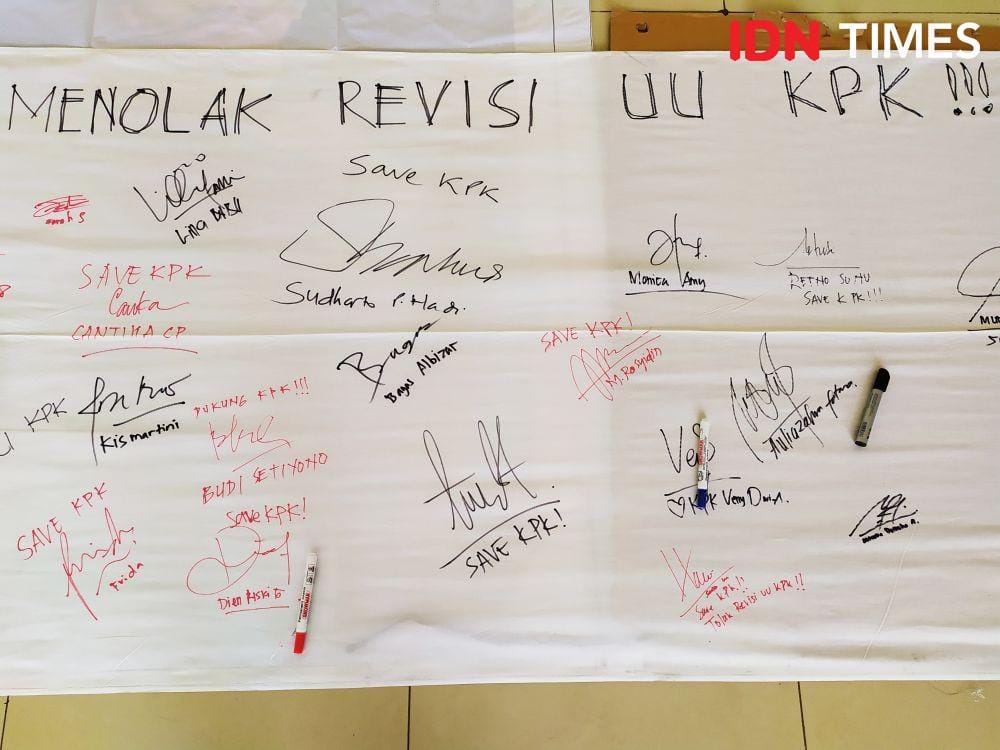 IDN TIMES
MENOLAK REVISI UU KPK !!!
Save KPK
Lina
SAVE KPK
Cantika
CANTIKA CP
Sudharto P. Hadi.
Monica Amy
RETNO SUNU
SAVE KPK!!!
SAVE KPK!
M. Rosyidin
Bagus Albizar
KPK
Kismartini
DUKUNG KPK!!!
BUDI SETIYONO
SAVE KPK
Frida
Save KPK!
Dien Riski
SAVE KPK!
Very
♡ KPK Veny
Save KPK!!
Tolak Revisi UU KPK!!